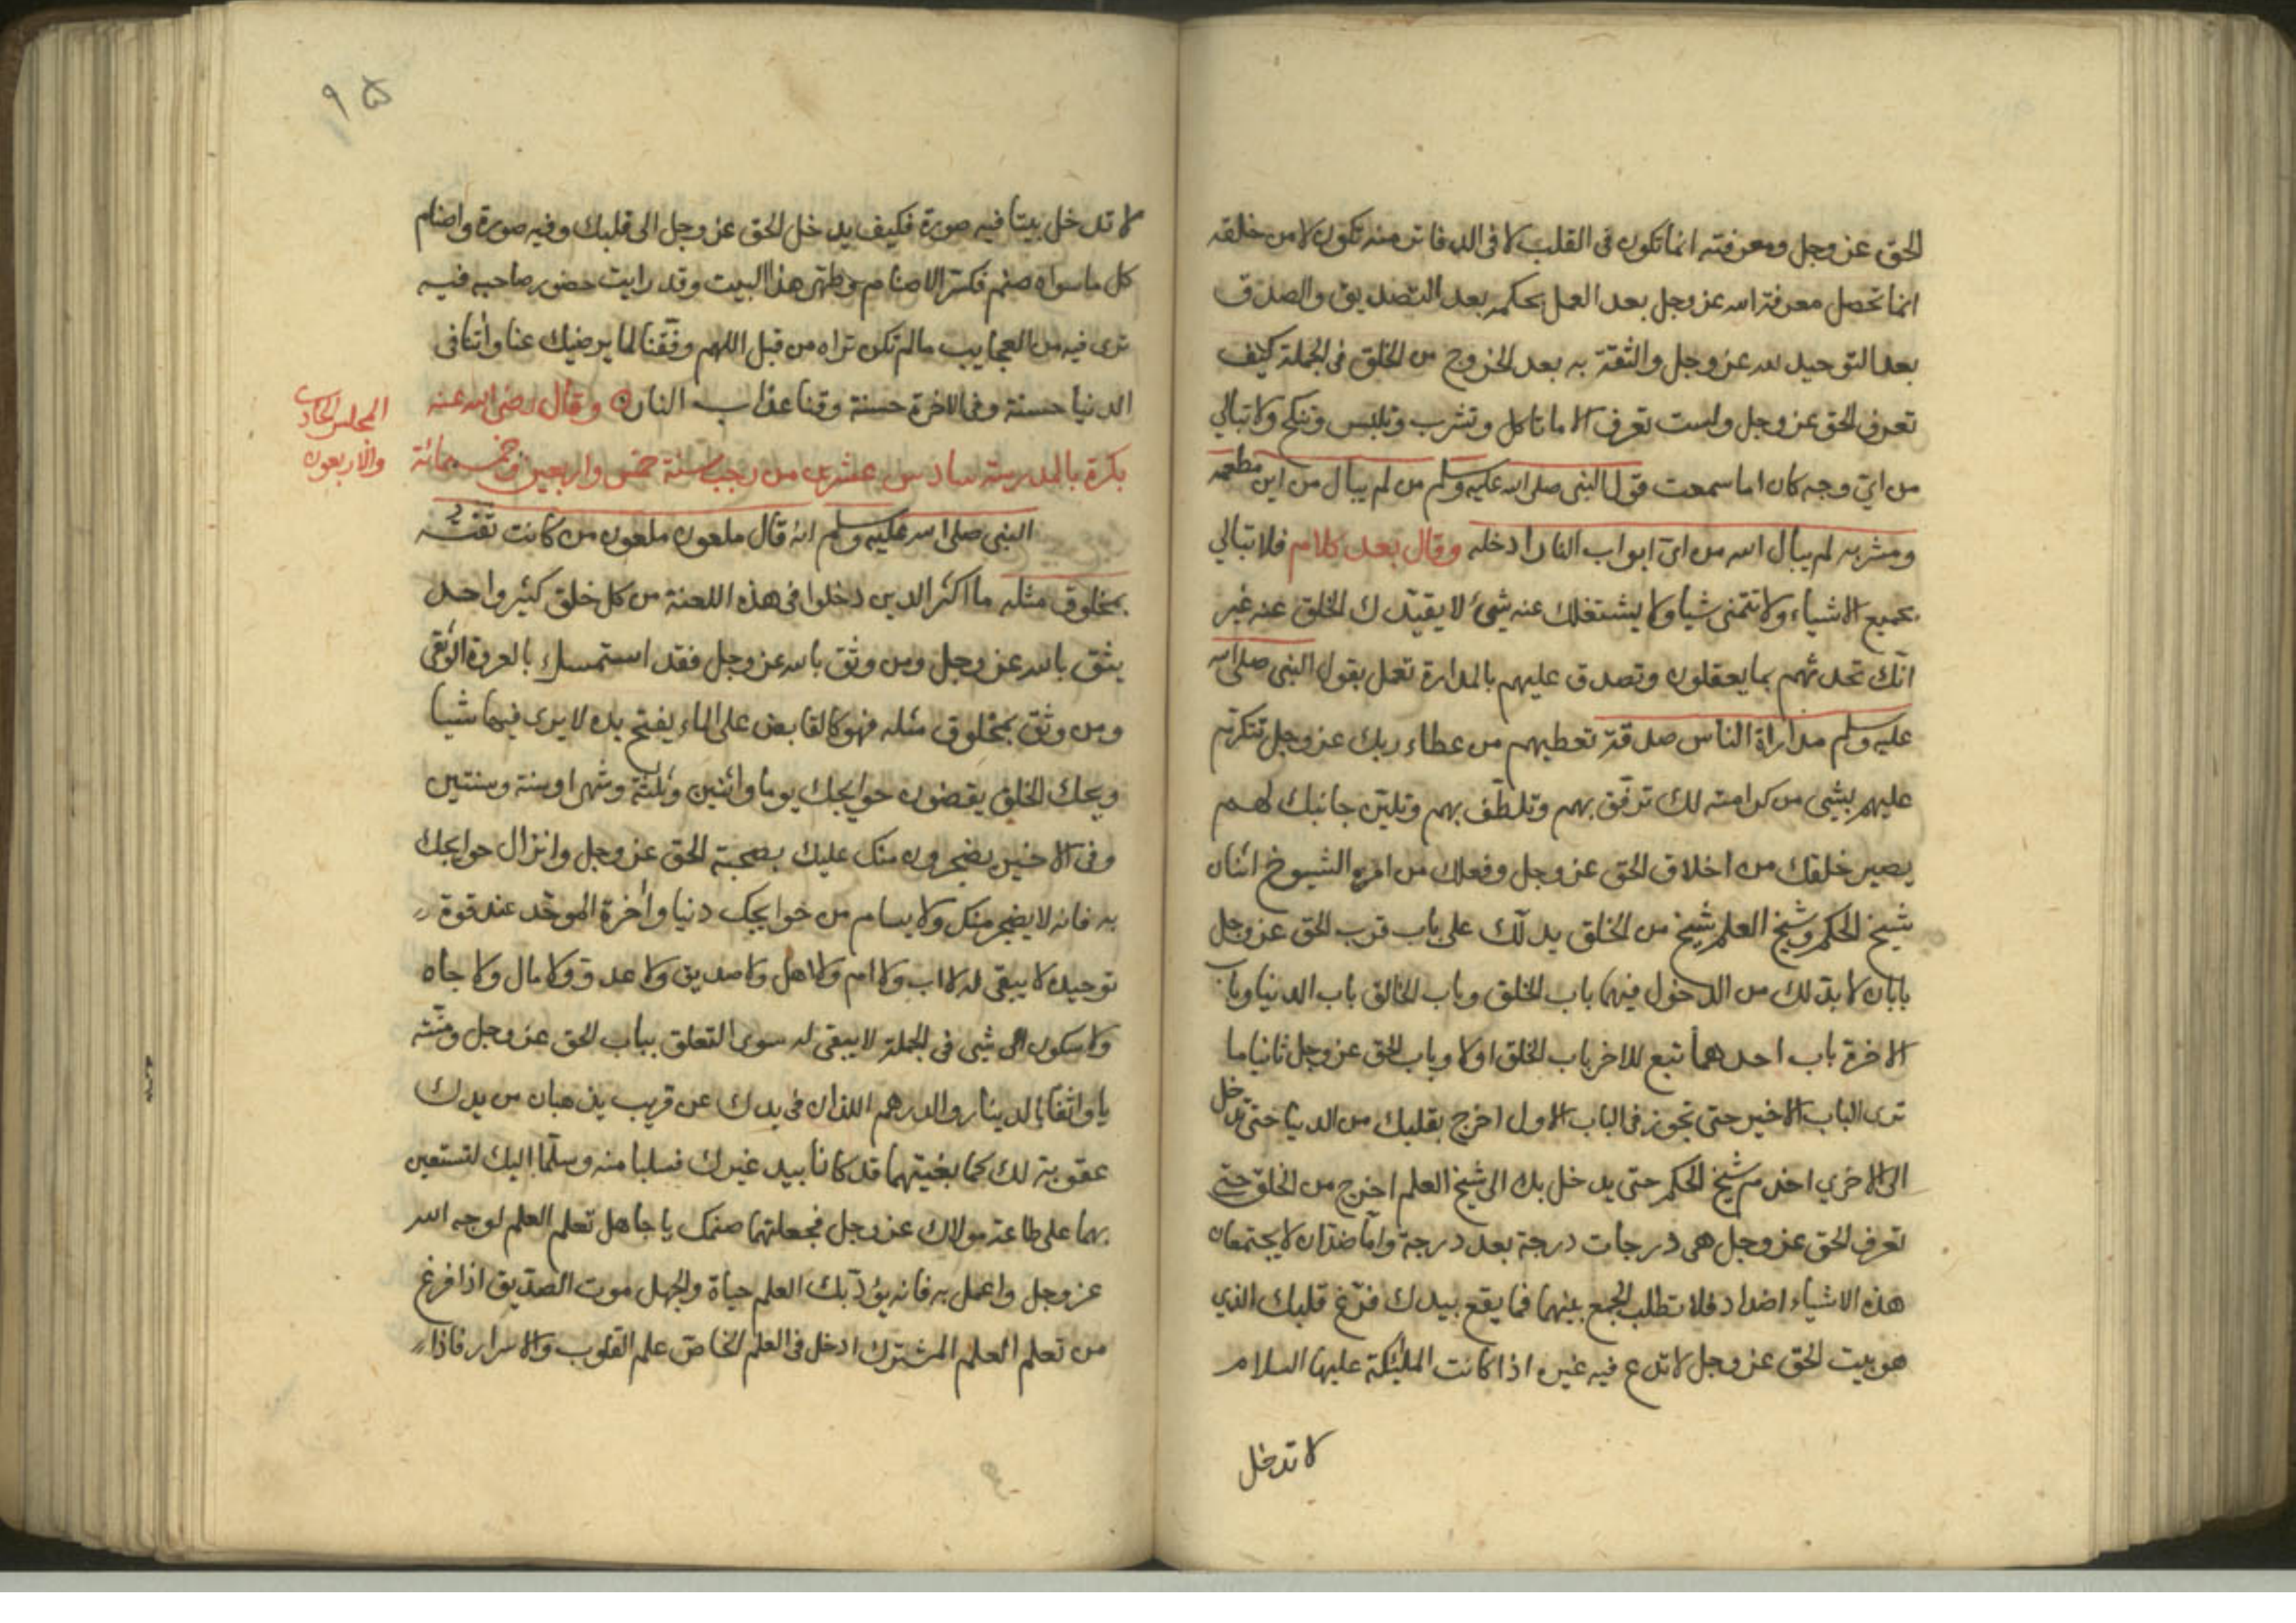 الحق عز وجل ومعرفته انما تكون في القلب لا في الدفاتر منه تكون لا من خلقه
انما تحصل معرفة الله عز وجل بعد العمل بحكمه بعد التصديق والصدق
بعد التوحيد لله عز وجل والثقة به بعد الخروج من الخلق في الجملة كيف
تعرف الحق عز وجل ولست تعرف الا ما تاكل وتشرب وتلبس وتنكح ولا تبالي
من اي وجه كان اما سمعت قول النبي صلى الله عليه وسلم من لم يبال من اين مطعمه
ومشربه لم يبال الله من اي ابواب النار ادخله وقال بعد كلام فلا تبالي
بجميع الاشياء ولا تتمنى شيا ولا يشتغلك عنه شيء لا يقيدك الخلق عنه غير
انك تحدثهم بما يعقلون وتصدق عليهم بالمدارة تعمل بقول النبي صلى الله
عليه وسلم مداراة الناس صدقة تعطيهم من عطاء ربك عز وجل تتكرم
عليهم بشي من كرامته لك ترفق بهم وتلطف بهم وتلين جانبك لهم
يصير خلقك من اخلاق الحق عز وجل وفعلك من امره الشيوخ اثنان
شيخ الحكم وشيخ العلم شيخ من الخلق يدلك على باب قرب الحق عز وجل
بابان لا بد لك من الدخول فيهما باب الخلق وباب الخالق باب الدنيا وباب
الاخرة باب احدهما تبع للاخر باب الخلق اولا وباب الحق عز وجل ثانيا ما
ترى الباب الاخير حتى تجوز في الباب الاول اخرج بقلبك من الدنيا حتى تدخل
الى الاخري اخدم شيخ الحكم حتى يدخل بك الى شيخ العلم اخرج من الخلق حتى
تعرف الحق عز وجل هي درجات درجة بعد درجة واما ضدان لا يجتمعان
هذه الاشياء اضداد فلا تطلب الجمع بينهما فما يقع بيدك فرغ قلبك الذي
هو بيت الحق عز وجل لا تدع فيه غيره اذا كانت المليكة عليها السلام
لا تدخل
٩٥
لا تدخل بيتا فيه صورة فكيف يدخل الحق عز وجل الى قلبك وفيه صورة واصنام
كل ما سواه صنم فكسر الاصنام وطهر هذا البيت وقد رايت حضور صاحبه فيه
ترى فيه من العجايب ما لم تكن تراه من قبل اللهم وفقنا لما يرضيك عنا واتنا في
الدنيا حسنة وفي الاخرة حسنة وقنا عذاب النار وقال رضي الله عنه
المجلس الحادي
والاربعون
بكرة بالمدرسة سادس عشرى من رجب سنة خمس واربعين وخمسمائة
النبي صلى الله عليه وسلم انه قال ملعون ملعون من كانت ثقته
بمخلوق مثله ما اكثر الذين دخلوا في هذه اللعنة من كل خلق كثير واحد
يثق بالله عز وجل ومن وثق بالله عز وجل فقد استمسك بالعروة الوثقى
ومن وثق بمخلوق مثله فهو كالقابض على الماء يفتح يده لا يرى فيها شيا
ويحك الخلق يقضون حوايجك يوما واثنين وثلثة وشهرا وسنة وسنتين
وفي الاخير يضجرون منك عليك بصحبة الحق عز وجل وانزال حوايجك
به فانه لا يضجر منك ولا يسام من حوايجك دنيا واخرة الموحد عند قوة
توحيده لا يبقى له لا اب ولا ام ولا اهل ولا صديق ولا عدو ولا مال ولا جاه
ولا سكون الى شي في الجملة لا يبقى له سوى التعلق بباب الحق عز وجل ومنته
يا واثقا بالدينار والدرهم اللذان في يدك عن قريب يذهبان من يدك
عقوبة لك كما بغيتهما قد كانا بيد غيرك فسلبا منه وسلما اليك لتستعين
بهما على طاعة مولاك عز وجل فجعلتهما صنمك يا جاهل تعلم العلم لوجه الله
عز وجل واعمل به فانه يؤدبك العلم حياة والجهل موت الصديق اذا فرغ
من تعلم العلم المشترك ادخل في العلم الخاص علم القلوب والاسرار فاذا